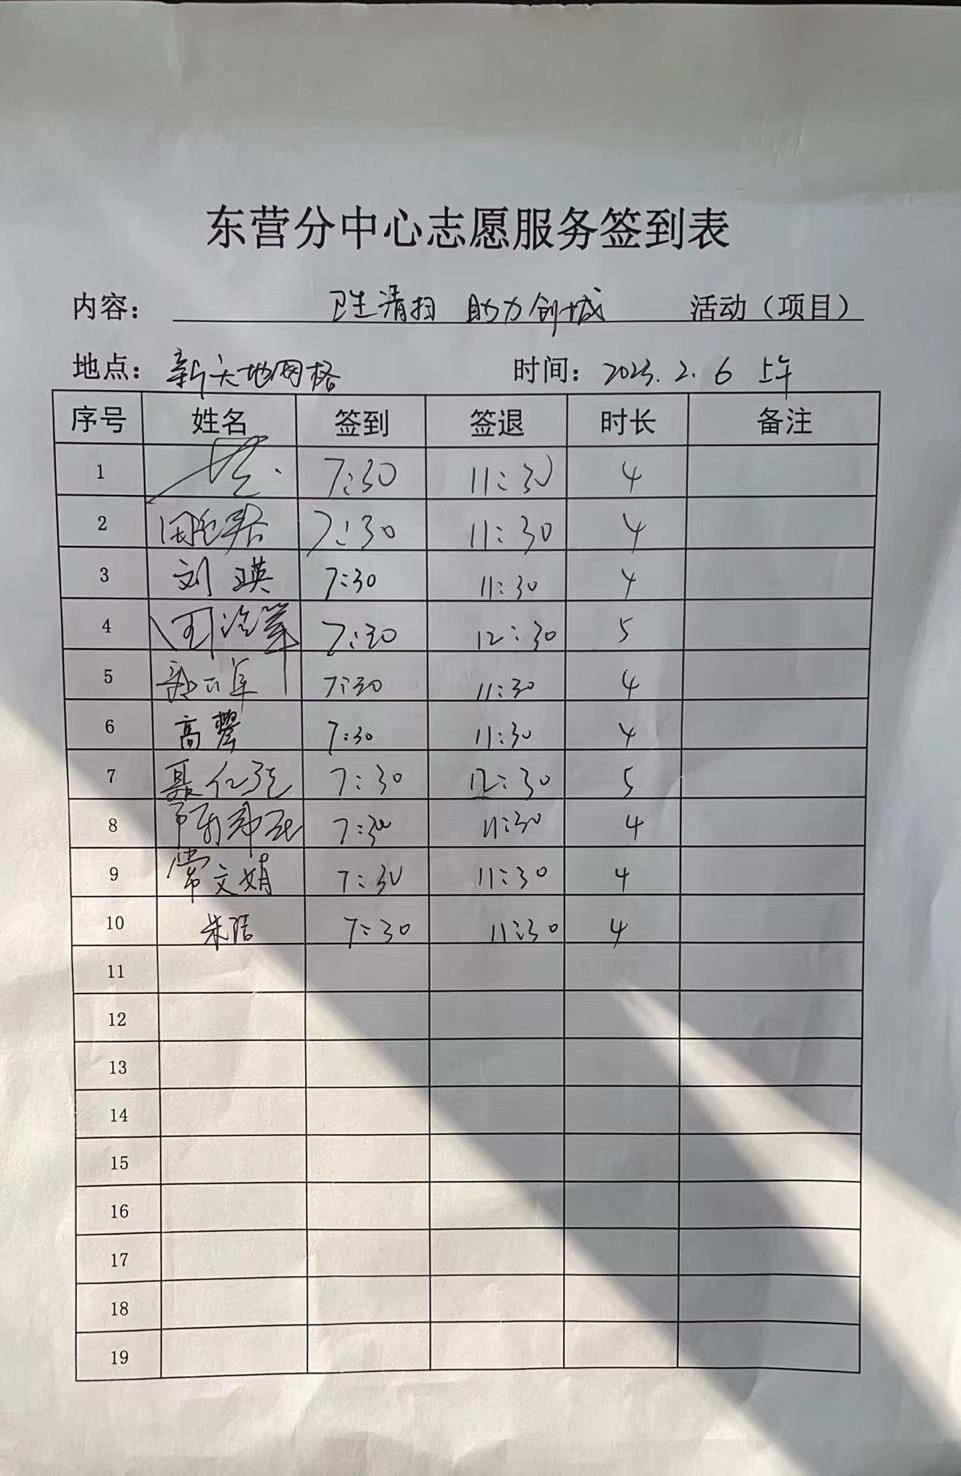 东营分中心志愿服务签到表
内容： 卫生清扫 助力创城 活动（项目）
地点：新天地网格 时间：2023.2.6 上午
序号 姓名 签到 签退 时长 备注
1 7:30 11:30 4
2 7:30 11:30 4
3 刘瑛 7:30 11:30 4
4 7:30 12:30 5
5 7:30 11:30 4
6 高馨 7:30 11:30 4
7 聂仁强 7:30 12:30 5
8 7:30 11:30 4
9 常文娟 7:30 11:30 4
10 朱洁 7:30 11:30 4
11
12
13
14
15
16
17
18
19